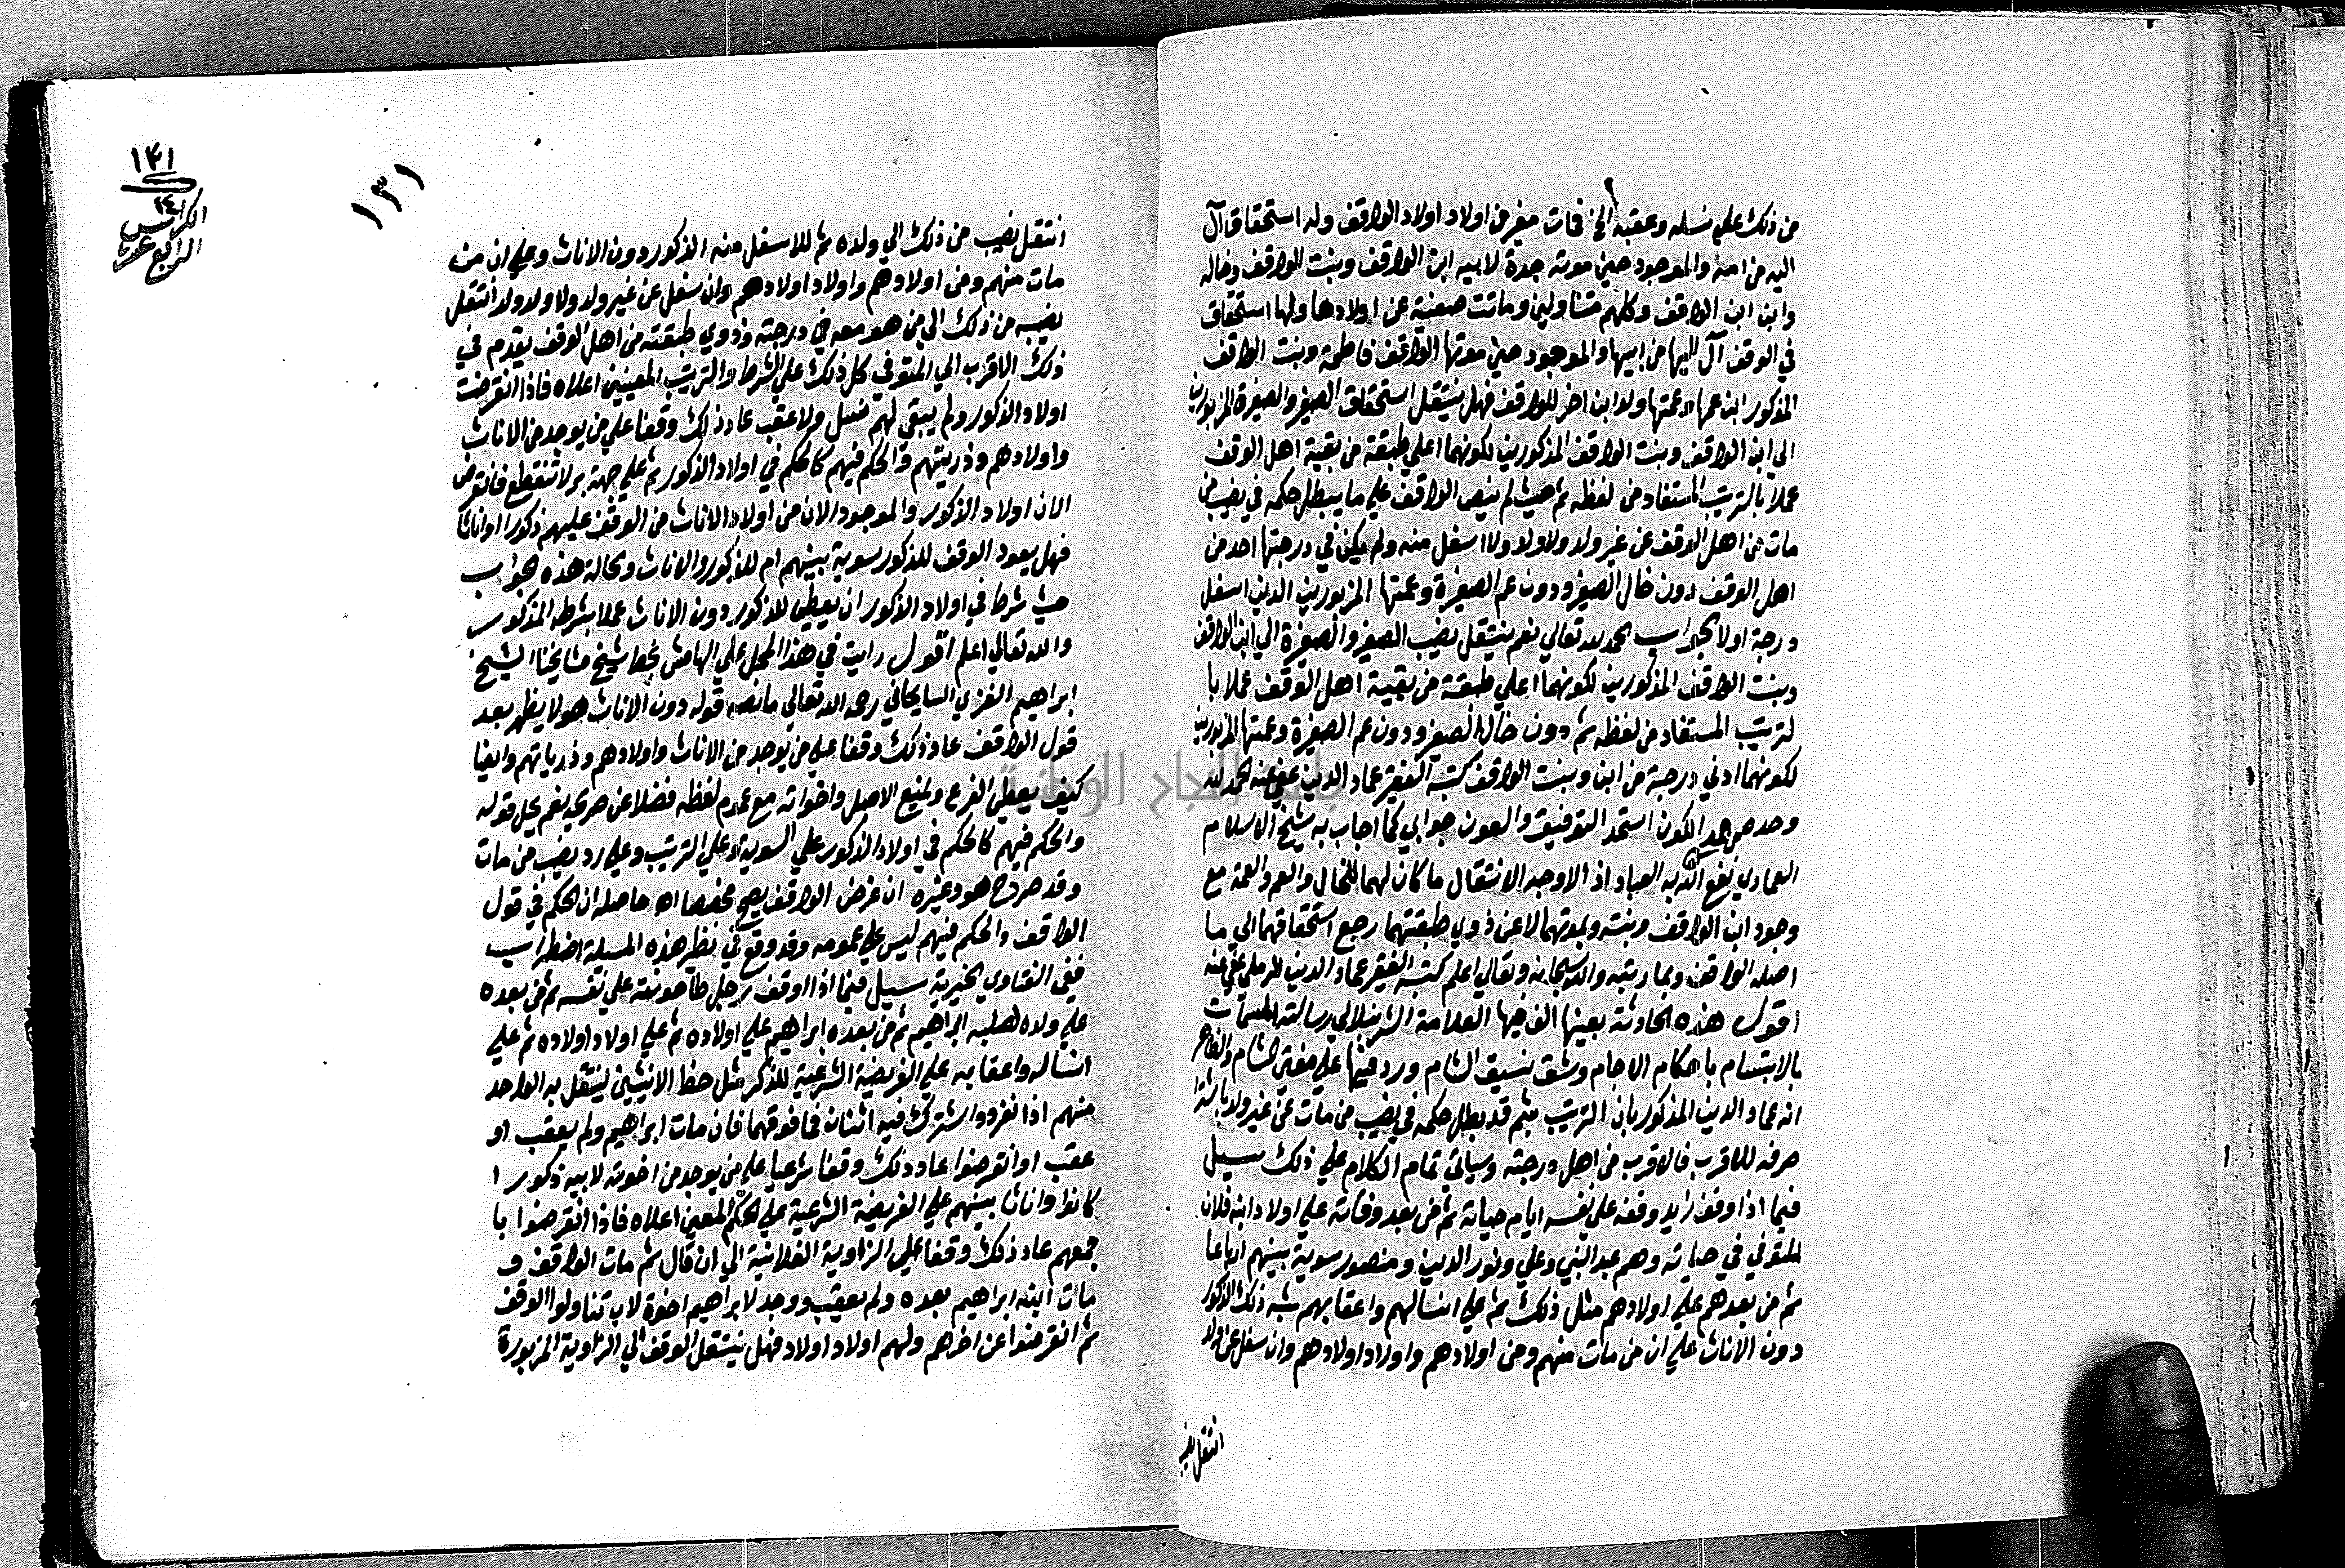 من ذلك علي نسله وعقبه الخ فمات صغير من اولاد اولاد الواقف وله استحقاق آل
اليه من امه والموجود حين موته جدة لابيه ابن الواقف وبنت الواقف وخاله
وابن ابن الواقف وكلهم متناولين وماتت صغيرة عن اولادها ولها استحقاق
في الوقف آل اليها من ابيها والموجود حين موتها الواقف فاطمة وبنت الواقف
المذكور ابن عمها وعمتها ولد ابن اخر للواقف فهل ينتقل استحقاق الصغير والصغيرة المزبورين
الي ابن الواقف وبنت الواقف المذكورين لكونهما اعلي طبقة من بقية اهل الوقف
عملا بالترتيب المستفاد من لفظه ثم حيث لم ينص الواقف علي ما يبطل حكمه في نصيب من
مات من اهل الوقف عن غير ولد ولا ولد ولا اسفل منه ولم يكن في درجتها احد من
اهل الوقف دون خال الصغير ودون عم الصغيرة وعمتها المزبورين الذين اسفل
درجة اولا الجواب الحمد لله تعالي نعم ينتقل نصيب الصغير والصغيرة الي ابن الواقف
وبنت الواقف المذكورين لكونهما اعلي طبقة من بقية اهل الوقف عملا با
لترتيب المستفاد من لفظه ثم دون خال الصغير ودون عم الصغيرة وعمتها المزبورين
لكونهما ادني درجة من ابن وبنت الواقف كتبه الفقير عماد الدين عفي عنه الحمد لله
وحده ممد الكون استمد التوفيق والعون جوابي كما اجاب به شيخ الاسلام
العمادي نفع الله به العباد اذ لا وجه لانتقال ما كان لهما للخال والعم والعمة مع
وجود ابن الواقف وبنته وبموتهما لا عن ذوي طبقتهما رجع استحقاقهما الي ما
اصله الواقف وبما رتبه والله سبحانه وتعالي اعلم كتبه الفقير عماد الدين الرملي عفي عنه
اقول هذه الحادثة بعينها الف فيها العلامة الشرنبلالي رسالته المسمات
بالابتسام باحكام الافحام ونشق نسيق الشام ورد فيها علي مفتي الشام والظاهر
انه عماد الدين المذكور بان الترتيب بثم قد بطل حكمه في نصيب من مات عن غير ولد باشتراط
صرفه للاقرب فالاقرب من اهل درجته وسياتي تمام الكلام علي ذلك سيل
فيما اذا وقف زيد وقفه علي نفسه ايام حياته ثم من بعد وفاته علي اولاد ابنه فلان
المتوفي في حياته وهم عبد النبي وعلي ونور الدين ومنصور سوية بينهم ارباعا
ثم من بعدهم علي اولادهم مثل ذلك ثم علي انسالهم واعقابهم شبه ذلك الذكور
دون الاناث علي ان من مات منهم ومن اولادهم واولاد اولادهم وان سفل عن ولد
انتقل نصيب
١٣١
١٤١
١٤
الكراس
الرابع عشر
انتقل نصيب من ذلك الي ولده ثم للاسفل منه الذكور دون الاناث وعلي ان من
مات منهم ومن اولادهم واولاد اولادهم وان سفل عن غير ولد ولا ولد ولد انتقل
نصيبه من ذلك الي من هو معه في درجته وذوي طبقته من اهل الوقف يقدم في
ذلك الاقرب الي المتوفي كل ذلك علي الشرط والترتيب المعينين اعلاه فاذا انقرضت
اولاد الذكور ولم يبقي لهم نسل ولا عقب عاد ذلك وقفا علي من يوجد من الاناث
واولادهم وذريتهم والحكم فيهم كالحكم في اولاد الذكور ثم علي جهة بر لا تنقطع فانقرض
الان اولاد الذكور والموجود الان من اولاد الاناث من الوقف عليهم ذكورا واناثا
فهل يعود الوقف للذكور سوية بينهم ام للذكور والاناث والحالة هذه الجواب
حيث شرط في اولاد الذكور ان يعطي للذكور دون الاناث عملا بشرطه المذكور
والله تعالي اعلم اقول رايت في هذا المحل علي الهامش بخط شيخ مشايخنا الشيخ
ابراهيم الغزي السايحاني رحمه الله تعالي ما نصه قوله دون الاناث هو لا يظهر بعد
قول الواقف عاد ذلك وقفا علي من يوجد من الاناث واولادهم وذرياتهم وايضا
كيف يعطي الفرع ويمنع الاصل واخواته مع عموم لفظه فضلا عن صريحه نعم يحل قوله
والحكم فيهم كالحكم في اولاد الذكور علي السوية وعلي الترتيب وعلي رد نصيب من مات
وقد صرح هو وغيره ان غرض الواقف يصح مخصصا اهـ حاصله ان الحكم في قول
الواقف والحكم فيهم ليس علي عمومه وقد وقع في نظر هذه المسلة اضطراب
ففي الفتاوي الخيرية سيل فيما اذا وقف رجل طاحونته علي نفسه ثم من بعده
علي ولده لصلبه ابراهيم ثم من بعده ابراهيم علي اولاده ثم علي اولاد اولاده ثم علي
انساله واعقابه علي الفريضة الشرعية للذكر مثل حظ الانثيين ليستقل به الواحد
منهم اذا انفرد واشترك فيه اثنان فما فوقهما فان مات ابراهيم ولم يعقب او
عقب وانقرضوا عاد ذلك وقفا شرعيا علي من يوجد من اخوته لابيه ذكورا
كانوا واناثا بينهم علي الفريضة الشرعية علي الحكم المعين اعلاه فاذا انقرضوا با
جمعهم عاد ذلك وقفا علي الزاوية الفلانية الي ان قال ثم مات الواقف و
مات ابنه ابراهيم بعده ولم يعقب ووجد لابراهيم اخوة لاب تناولوا الوقف
ثم انقرضوا عن اخرهم ولهم اولاد اولاد فهل ينتقل الوقف الي الزاوية المزبورة